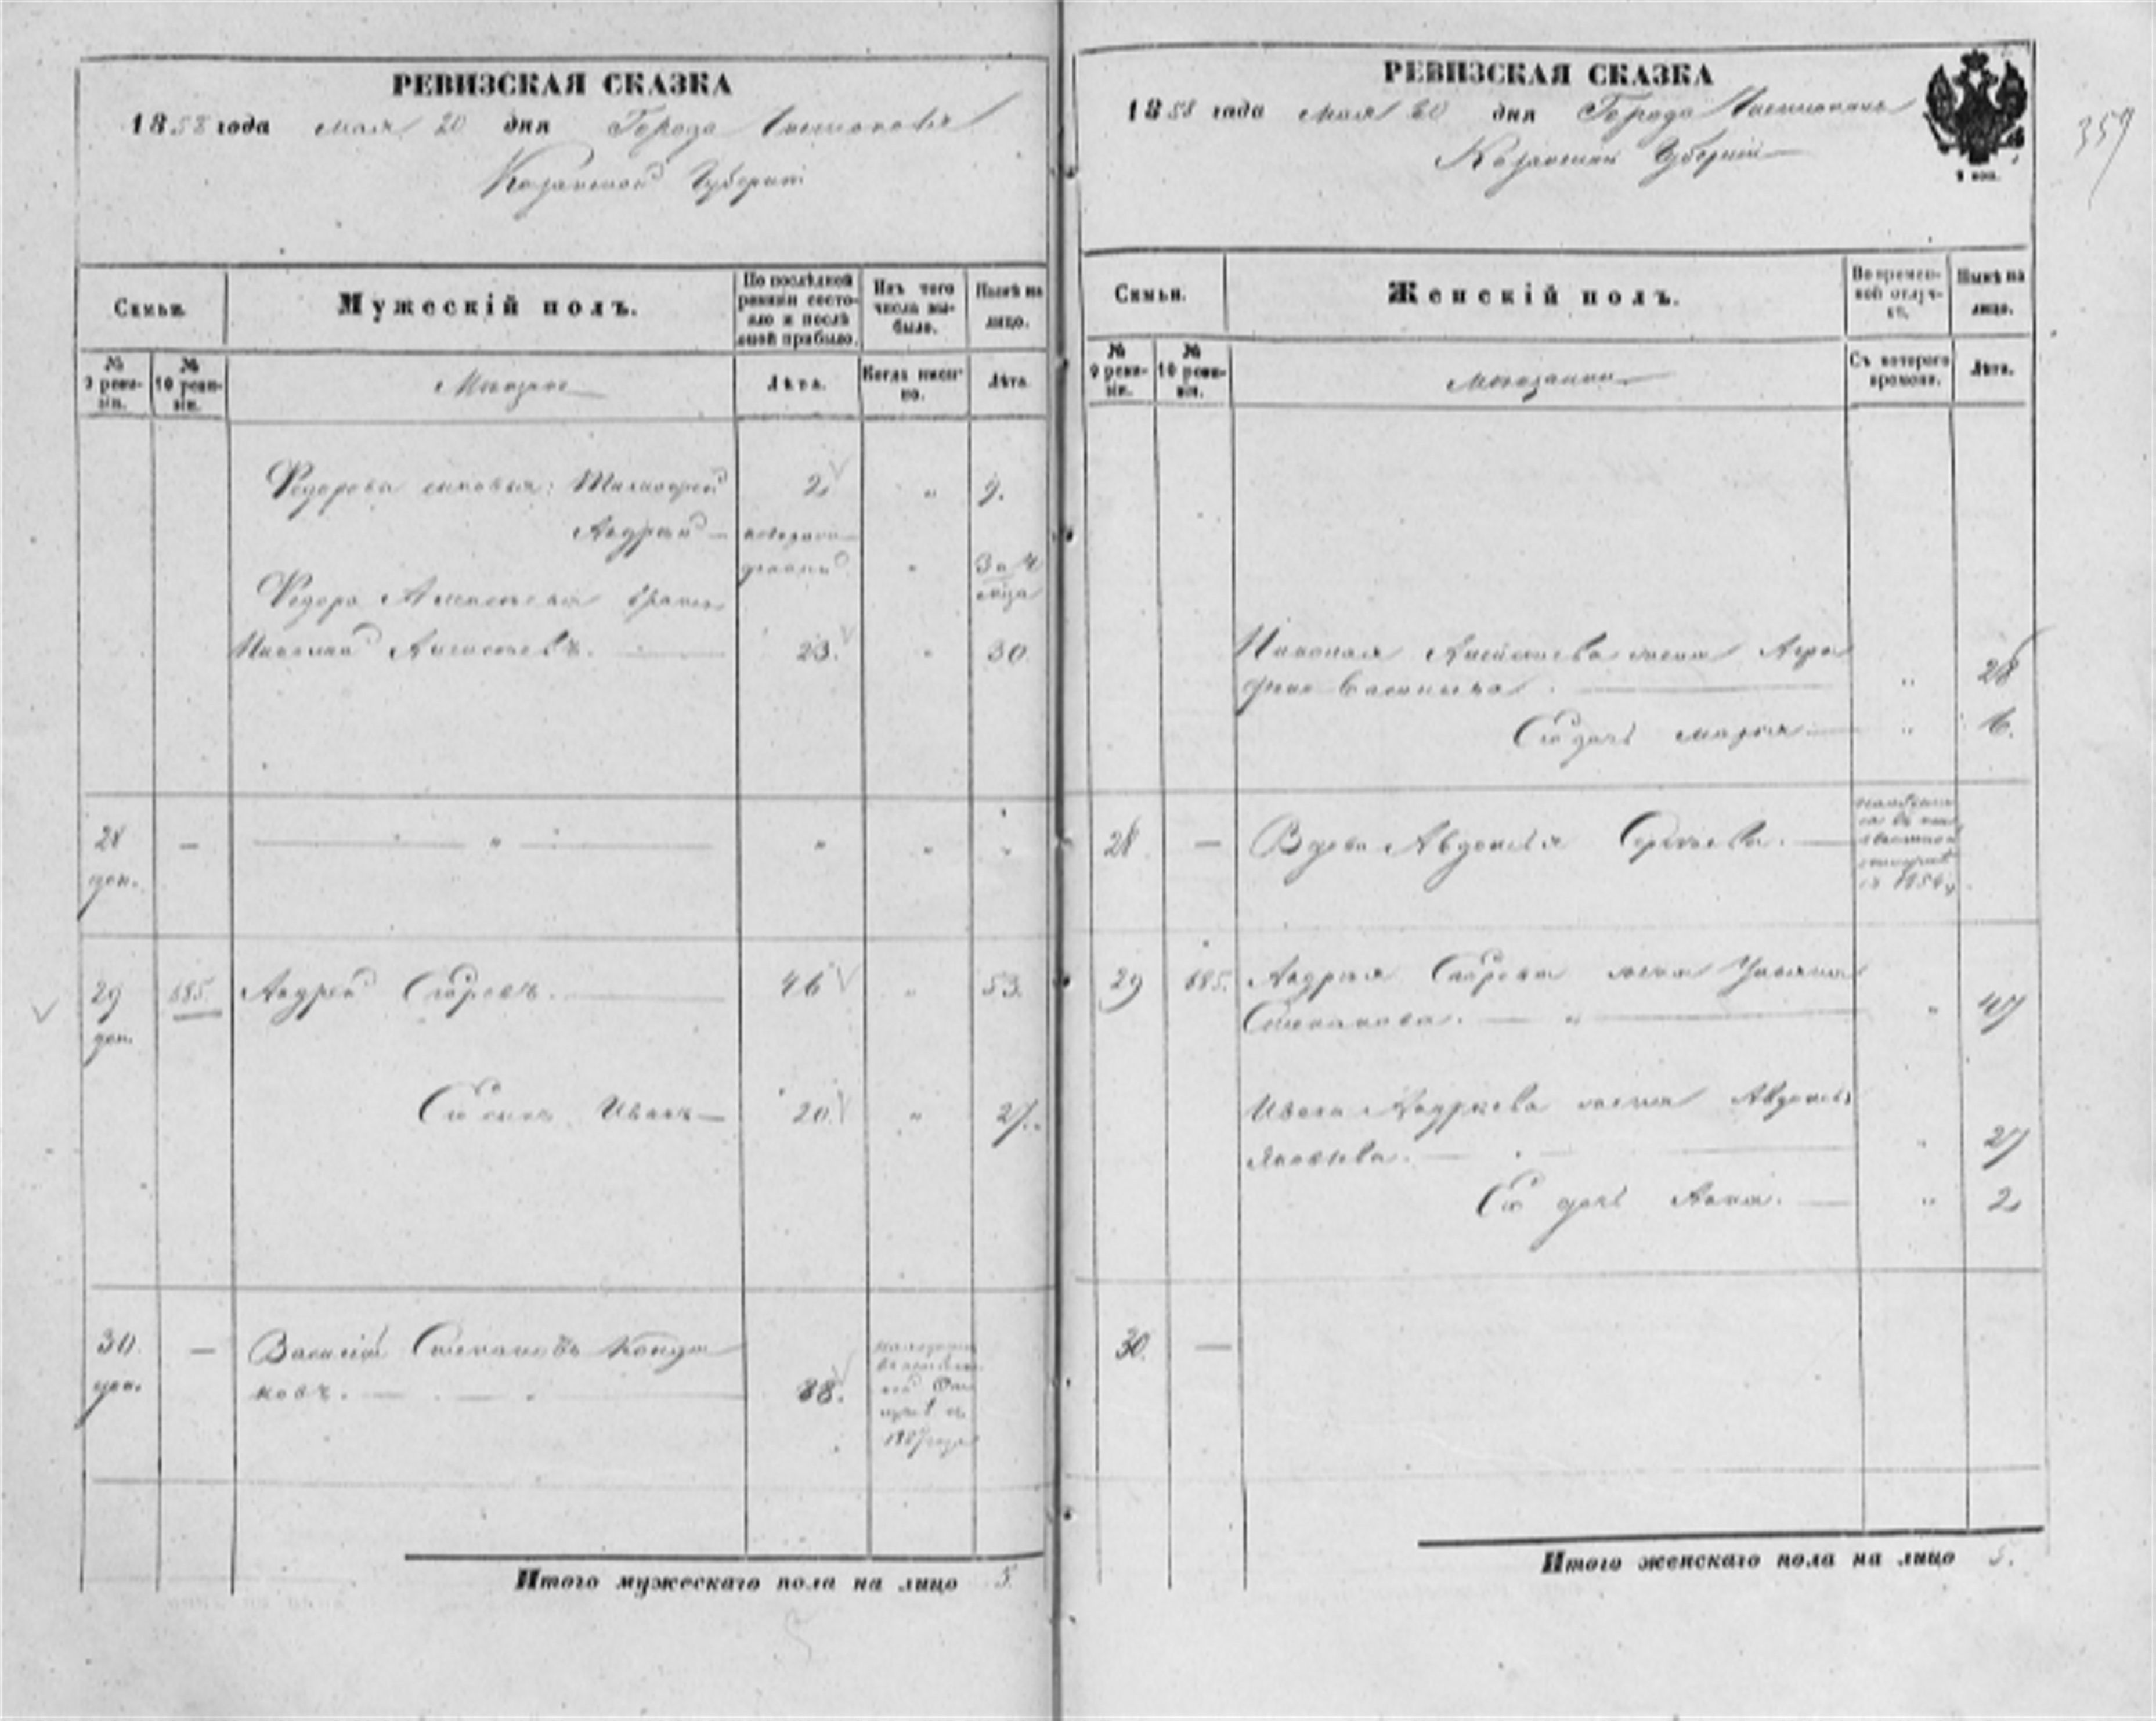 РЕВИЗСКАЯ СКАЗКА
1858 года мая 20 дня Города Чистополя
Казанской Губернии
Семьи.
Мужескій полъ.
По послѣдней ревизіи состояло и послѣ оной прибыло.
Изъ того числа выбыло.
Нынѣ на лицо.
№ 9 ревизіи.
№ 10 ревизіи.
Лѣта.
Когда именно.
Лѣта.
Федора сыновья: 2 " 9.
Андрей — новорож
денный " 3 и 4
мца
Федора Алексѣева братъ
Николай Алексѣевъ. 23. " 30
28 — " " " "
доп.
29 685 Андрей Егоровъ. 46 " 53.
доп.
Его сынъ Иванъ — 20. " 27.
30. — Василій Степановъ
доп. ковъ. — 38.
1857 года
Итого мужескаго пола на лицо 5.
РЕВИЗСКАЯ СКАЗКА
1858 года мая 20 дня Города Чистополя
Казанской Губернии
359
Семьи.
Женскій полъ.
Во временной отлучкѣ.
Нынѣ на лицо.
№ 9 ревизіи.
№ 10 ревизіи.
Съ которого времени.
Лѣта.
Николая Алексѣева жена Агра
фена " 28
Его дочь Марья — " 6.
28. — Вдова Авдотья Сергѣева. —
29 685. Андрея Егорова жена Ульяна
Степанова. — " 47
Ивана Андреева жена Авдотья
Яковлева. — " 27
Его дочь Анна. — " 2
30. —
Итого женскаго пола на лицо 5.